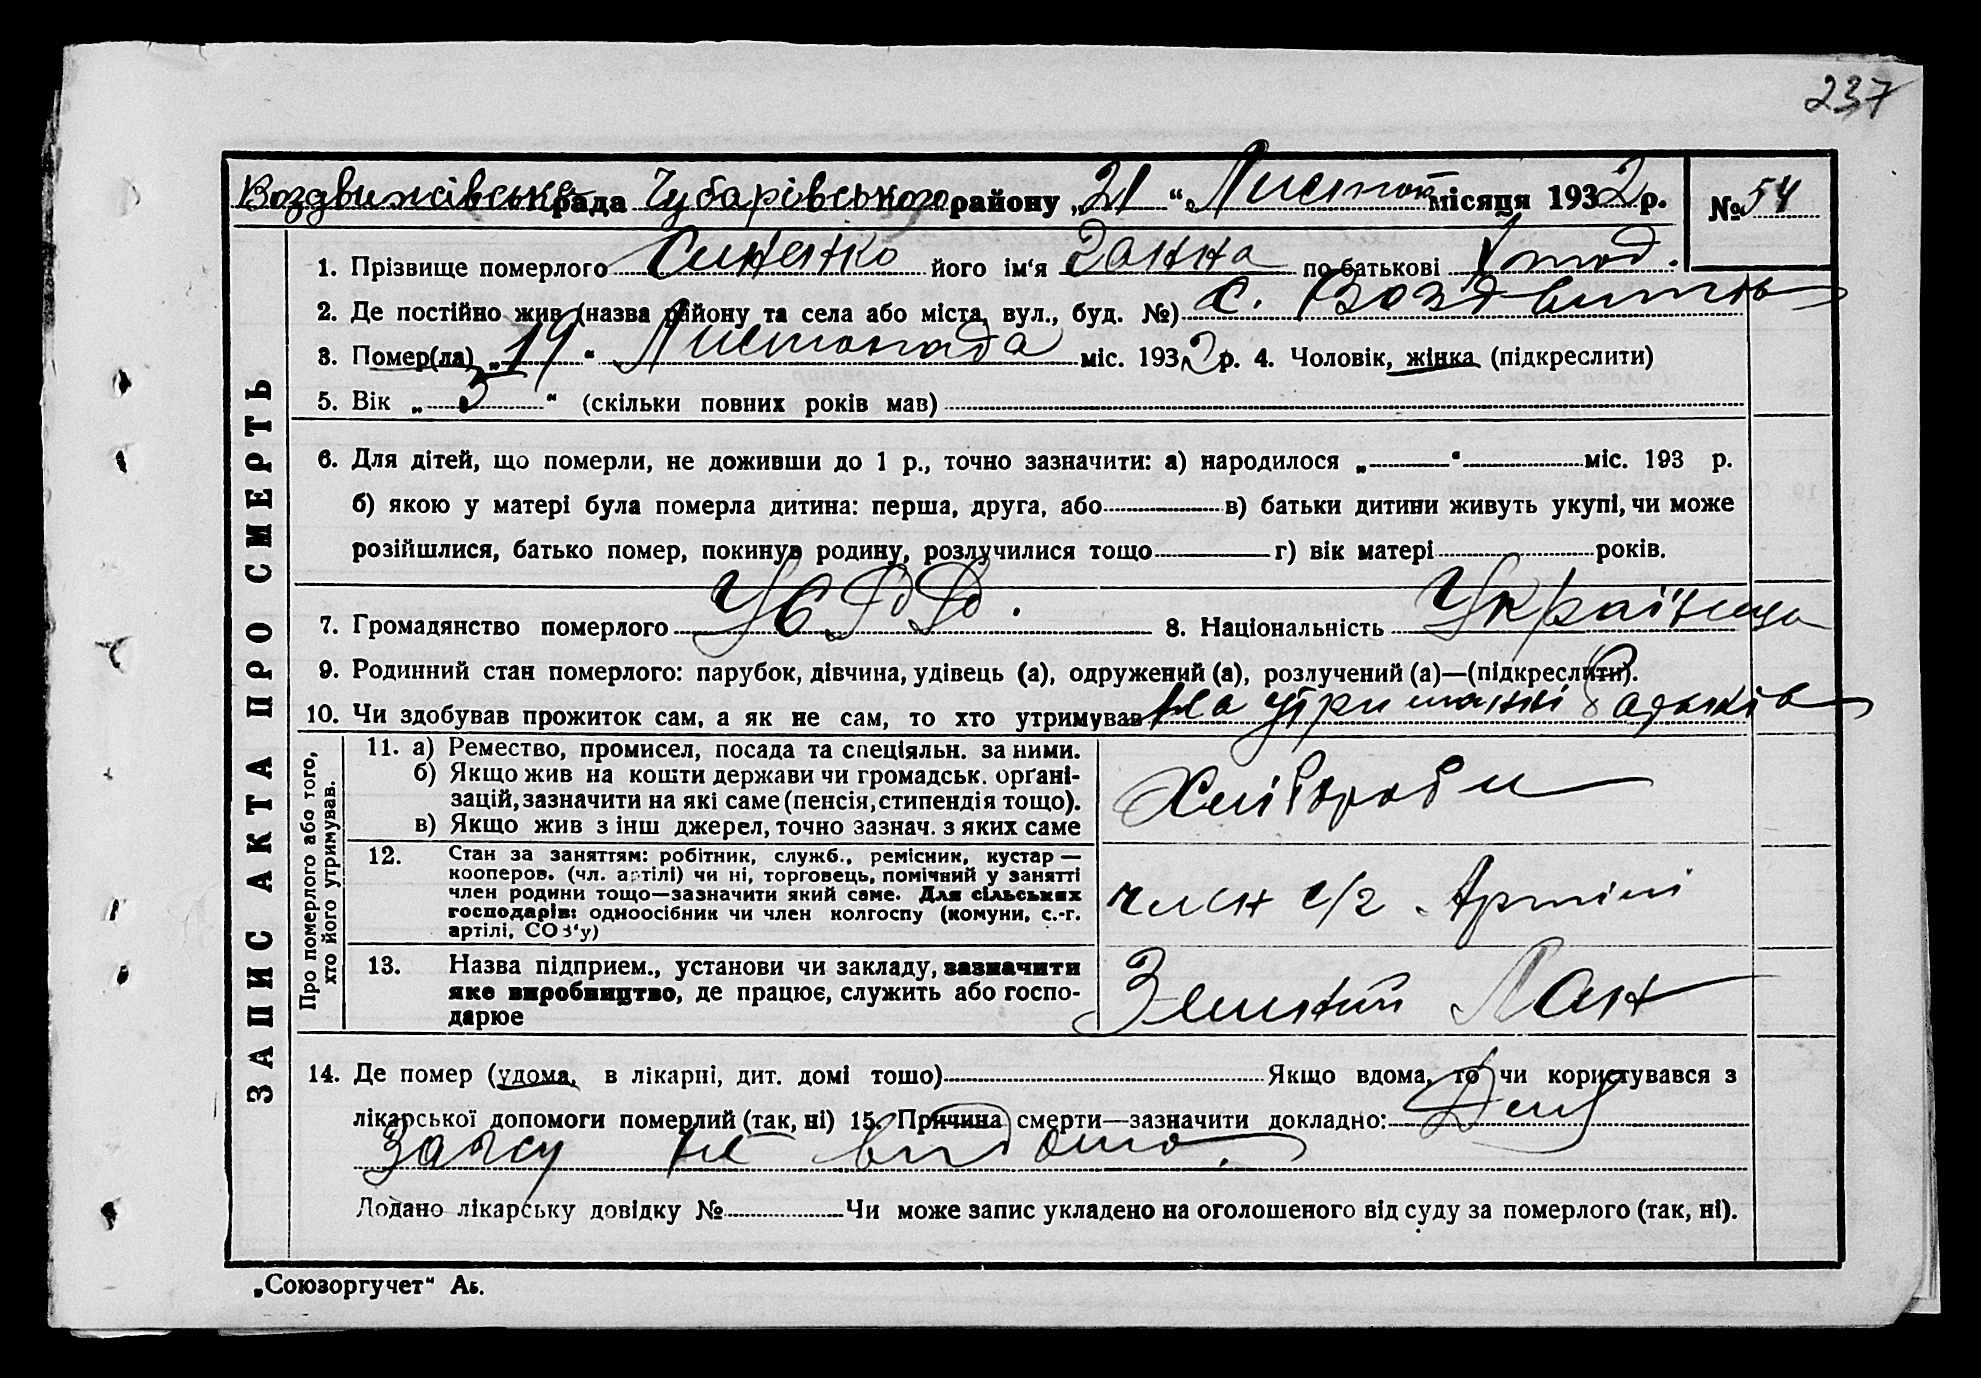 237
Воздвижівська рада Чубарівського району „21“ Листопад місяця 1932 р. № 54
ЗАПИС АКТА ПРО СМЕРТЬ
1. Прізвище померлого Синенко його ім‘я Ганна по батькові
2. Де постійно жив (назва району та села або міста, вул., буд. №) с. Воздвижів
3. Помер(ла) „19“ Листопада міс. 1932 р. 4. Чоловік, жінка (підкреслити)
5. Вік „3“ (скільки повних років мав)
6. Для дітей, що померли, не доживши до 1 р., точно зазначити: а) народилося „ “ міс. 193 р.
б) якою у матері була померла дитина: перша, друга, або в) батьки дитини живуть укупі, чи може
розійшлися, батько помер, покинув родину, розлучилися тощо г) вік матері років.
7. Громадянство померлого УСРР. 8. Національність Українца
9. Родинний стан померлого: парубок, дівчина, удівець (а), одружений (а), розлучений (а)—(підкреслити).
10. Чи здобував прожиток сам, а як не сам, то хто утримував На утриманні батьків
Про померлого або того, хто його утримував.
11. а) Ремество, промисел, посада та спеціяльн. за ними.
б) Якщо жив на кошти держави чи громадськ. орґані-
зацій, зазначити на які саме (пенсія, стипендія тощо).
в) Якщо жив з інш джерел, точно зазнач. з яких саме
Хлібороби
12. Стан за заняттям: робітник, служб., ремісник, кустар —
кооперов. (чл. артілі) чи ні, торговець, помічний у занятті
член родини тощо—зазначити який саме. Для сільських
господарів: одноосібник чи член колгоспу (комуни, с.-г.
артілі, СОЗ‘у)
член с/г Артілі
13. Назва підприєм., установи чи закладу, зазначити
яке виробництво, де працює, служить або госпо-
дарює
Зелений Лан
14. Де помер (удома, в лікарні, дит. домі тощо) Якщо вдома, то чи користувався з
лікарської допомоги померлий (так, ні) 15. Причина смерти—зазначити докладно: Для
Загсу не відомо.
Додано лікарську довідку № Чи може запис укладено на оголошеного від суду за померлого (так, ні).
„Союзоргучет“ Аь.